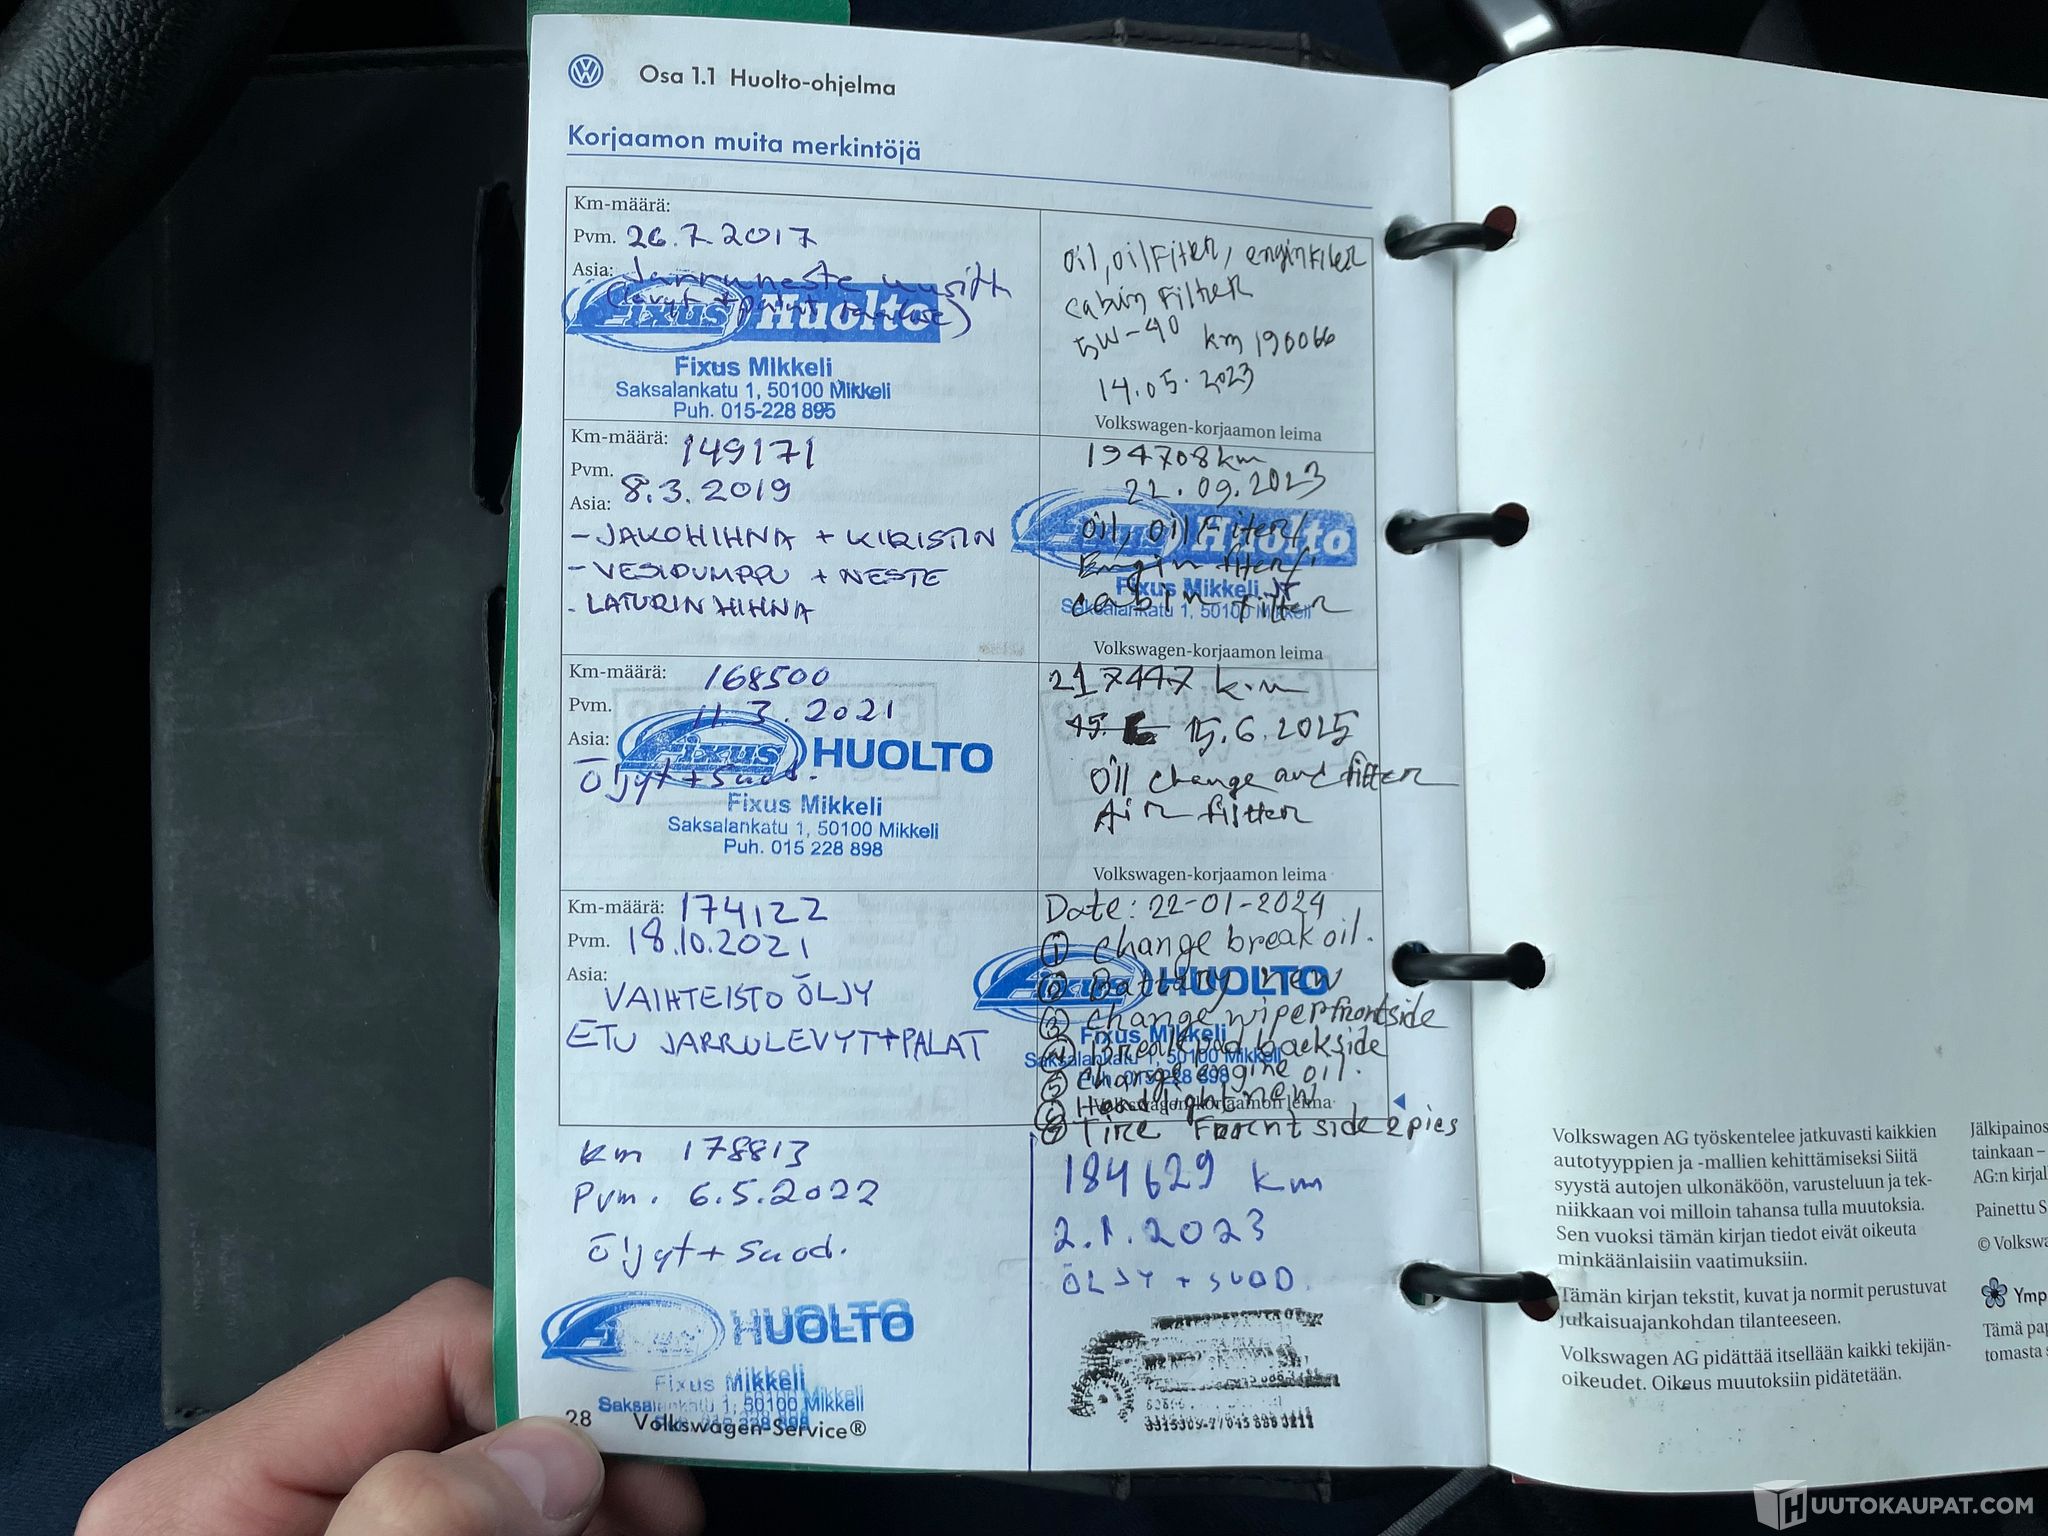 Osa 1.1 Huolto-ohjelma
Korjaamon muita merkintöjä
Km-määrä:
Pvm. 26.7.2017
Asia: Jarruneste uusittu
Fixus Huolto
Fixus Mikkeli
Saksalankatu 1, 50100 Mikkeli
Puh. 015-228 895
oil, oil Fiter, engin Filer
cabin Filter
5W-40 km 190066
14.05.2023
Volkswagen-korjaamon leima
Km-määrä: 149171
Pvm. 8.3.2019
Asia:
- JAKOHIHNA + KIRISTIN
- VESIPUMPPU + NESTE
- LATURIN HIHNA
194708 km
22.09.2023
Fixus Huolto
oil, oil Fiter/
Engin fiter/
Fixus Mikkeli
cabin filter
Saksalankatu 1, 50100 Mikkeli
Volkswagen-korjaamon leima
Km-määrä: 168500
Pvm. 11.3.2021
Asia:
Fixus HUOLTO
Öljyt + Suod.
Fixus Mikkeli
Saksalankatu 1, 50100 Mikkeli
Puh. 015 228 898
217447 k.m
15.6.2025
Oil change and filter
Air filtter
Volkswagen-korjaamon leima
Km-määrä: 174122
Pvm. 18.10.2021
Asia:
VAIHTEISTO ÖLJY
ETU JARRULEVYT+PALAT
Date: 22-01-2024
① change break oil.
② Battary new
③ change wiper frontside
④ Break pad backside
⑤ change engine oil.
⑥ Headlight new
⑦ Tire Front side 2 pies
Fixus HUOLTO
Fixus Mikkeli
Saksalankatu 1, 50100 Mikkeli
Puh. 015 228 898
Volkswagen-korjaamon leima
Km 178813
Pvm. 6.5.2022
Öljyt + Suod.
HUOLTO
Fixus Mikkeli
Saksalankatu 1, 50100 Mikkeli
184629 km
2.1.2023
ÖLJY + SUOD.
28 Volkswagen-Service®
Volkswagen AG työskentelee jatkuvasti kaikkien
autotyyppien ja -mallien kehittämiseksi Siitä
syystä autojen ulkonäköön, varusteluun ja tek-
niikkaan voi milloin tahansa tulla muutoksia.
Sen vuoksi tämän kirjan tiedot eivät oikeuta
minkäänlaisiin vaatimuksiin.
Tämän kirjan tekstit, kuvat ja normit perustuvat
julkaisuajankohdan tilanteeseen.
Volkswagen AG pidättää itsellään kaikki tekijän-
oikeudet. Oikeus muutoksiin pidätetään.
Jälkipainos
tainkaan –
AG:n kirjal
Painettu S
© Volkswa
Ymp
Tämä pap
tomasta s
HUUTOKAUPAT.COM